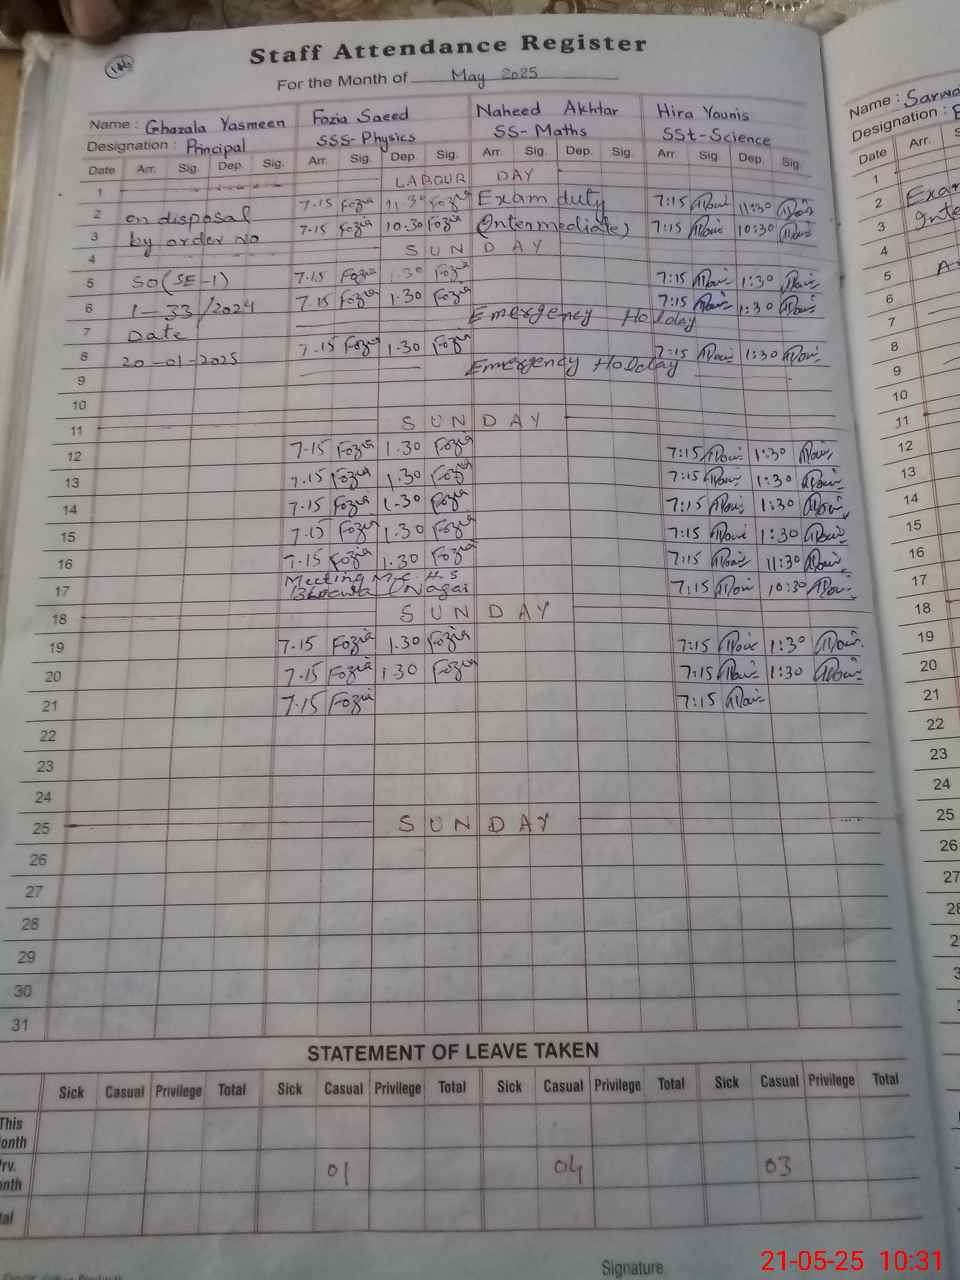 146
Staff Attendance Register
For the Month of May 2025
Name : Ghazala Yasmeen Fozia Saeed Naheed Akhtar Hira Younis
Designation : Principal SSS-Physics SS-Maths SSt-Science
Date Arr. Sig. Dep. Sig. Arr. Sig. Dep. Sig. Arr. Sig. Dep. Sig. Arr. Sig. Dep. Sig.
1 LABOUR DAY
2 on disposal 7.15 Fozia 11.30 Fozia Exam duty 7:15 11:30
3 by order no 7.15 Fozia 10.30 Fozia (Intermediate) 7:15 10:30
4 SUNDAY
5 SO(SE-1) 7.15 Fozia 1.30 Fozia 7:15 1:30
6 1-33/2024 7.15 Fozia 1.30 Fozia 7:15 1:30
7 Date Emergency Holiday
8 20-01-2025 7.15 Fozia 1.30 Fozia 7:15 1:30
9 Emergency Holiday
10
11 SUNDAY
12 7.15 Fozia 1.30 Fozia 7:15 1:30
13 7.15 Fozia 1.30 Fozia 7:15 1:30
14 7.15 Fozia 1.30 Fozia 7:15 1:30
15 7.15 Fozia 1.30 Fozia 7:15 1:30
16 7.15 Fozia 1.30 Fozia 7:15 11:30
17 Meeting 7:15 10:30
18 SUNDAY
19 7.15 Fozia 1.30 Fozia 7:15 1:30
20 7.15 Fozia 1.30 Fozia 7:15 1:30
21 7.15 Fozia 7:15
22
23
24
25 SUNDAY
26
27
28
29
30
31
STATEMENT OF LEAVE TAKEN
Sick Casual Privilege Total Sick Casual Privilege Total Sick Casual Privilege Total Sick Casual Privilege Total
This
onth
rv. 01 04 03
nth
tal
Signature
Name : Sarwa
Designation :
Date Arr.
1
2 Exa
3 Inte
4
5
6
7
8
9
10
11
12
13
14
15
16
17
18
19
20
21
22
23
24
25
26
27
21-05-25 10:31